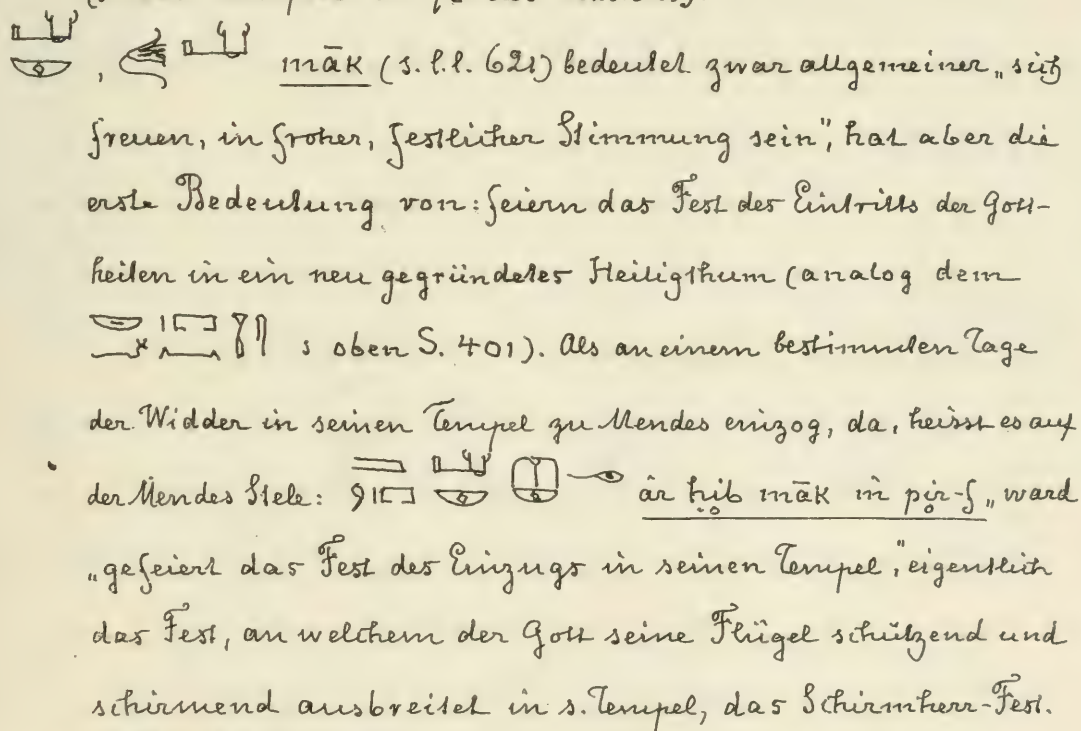 māk (s. l.l. 621) bedeutet zwar allgemeiner „sich
freuen, in froher, festlicher Stimmung sein”, hat aber die
erste Bedeutung von: feiern das Fest des Eintritts der Gott-
heiten in ein neu gegründetes Heiligthum (analog dem
s oben S. 401). Als an einem bestimmten Tage
der Widder in seinen Tempel zu Mendes einzog, da, heisst es auf
der Mendes Stele: âr ḥib māk m pir-f „ward
„gefeiert das Fest des Einzugs in seinen Tempel”, eigentlich
das Fest, an welchem der Gott seine Flügel schützend und
schirmend ausbreitet in s. Tempel, das Schirmherr-Fest.